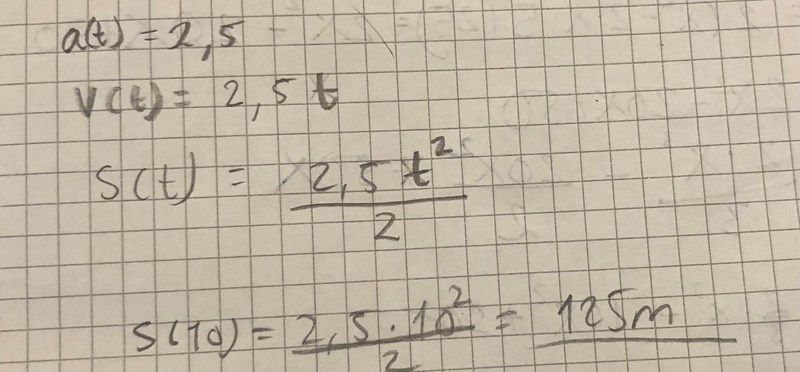 a(t) = 2,5
v(t) = 2,5 t
s(t) = 2,5 t² / 2
s(10) = 2,5 · 10² / 2 = 125m